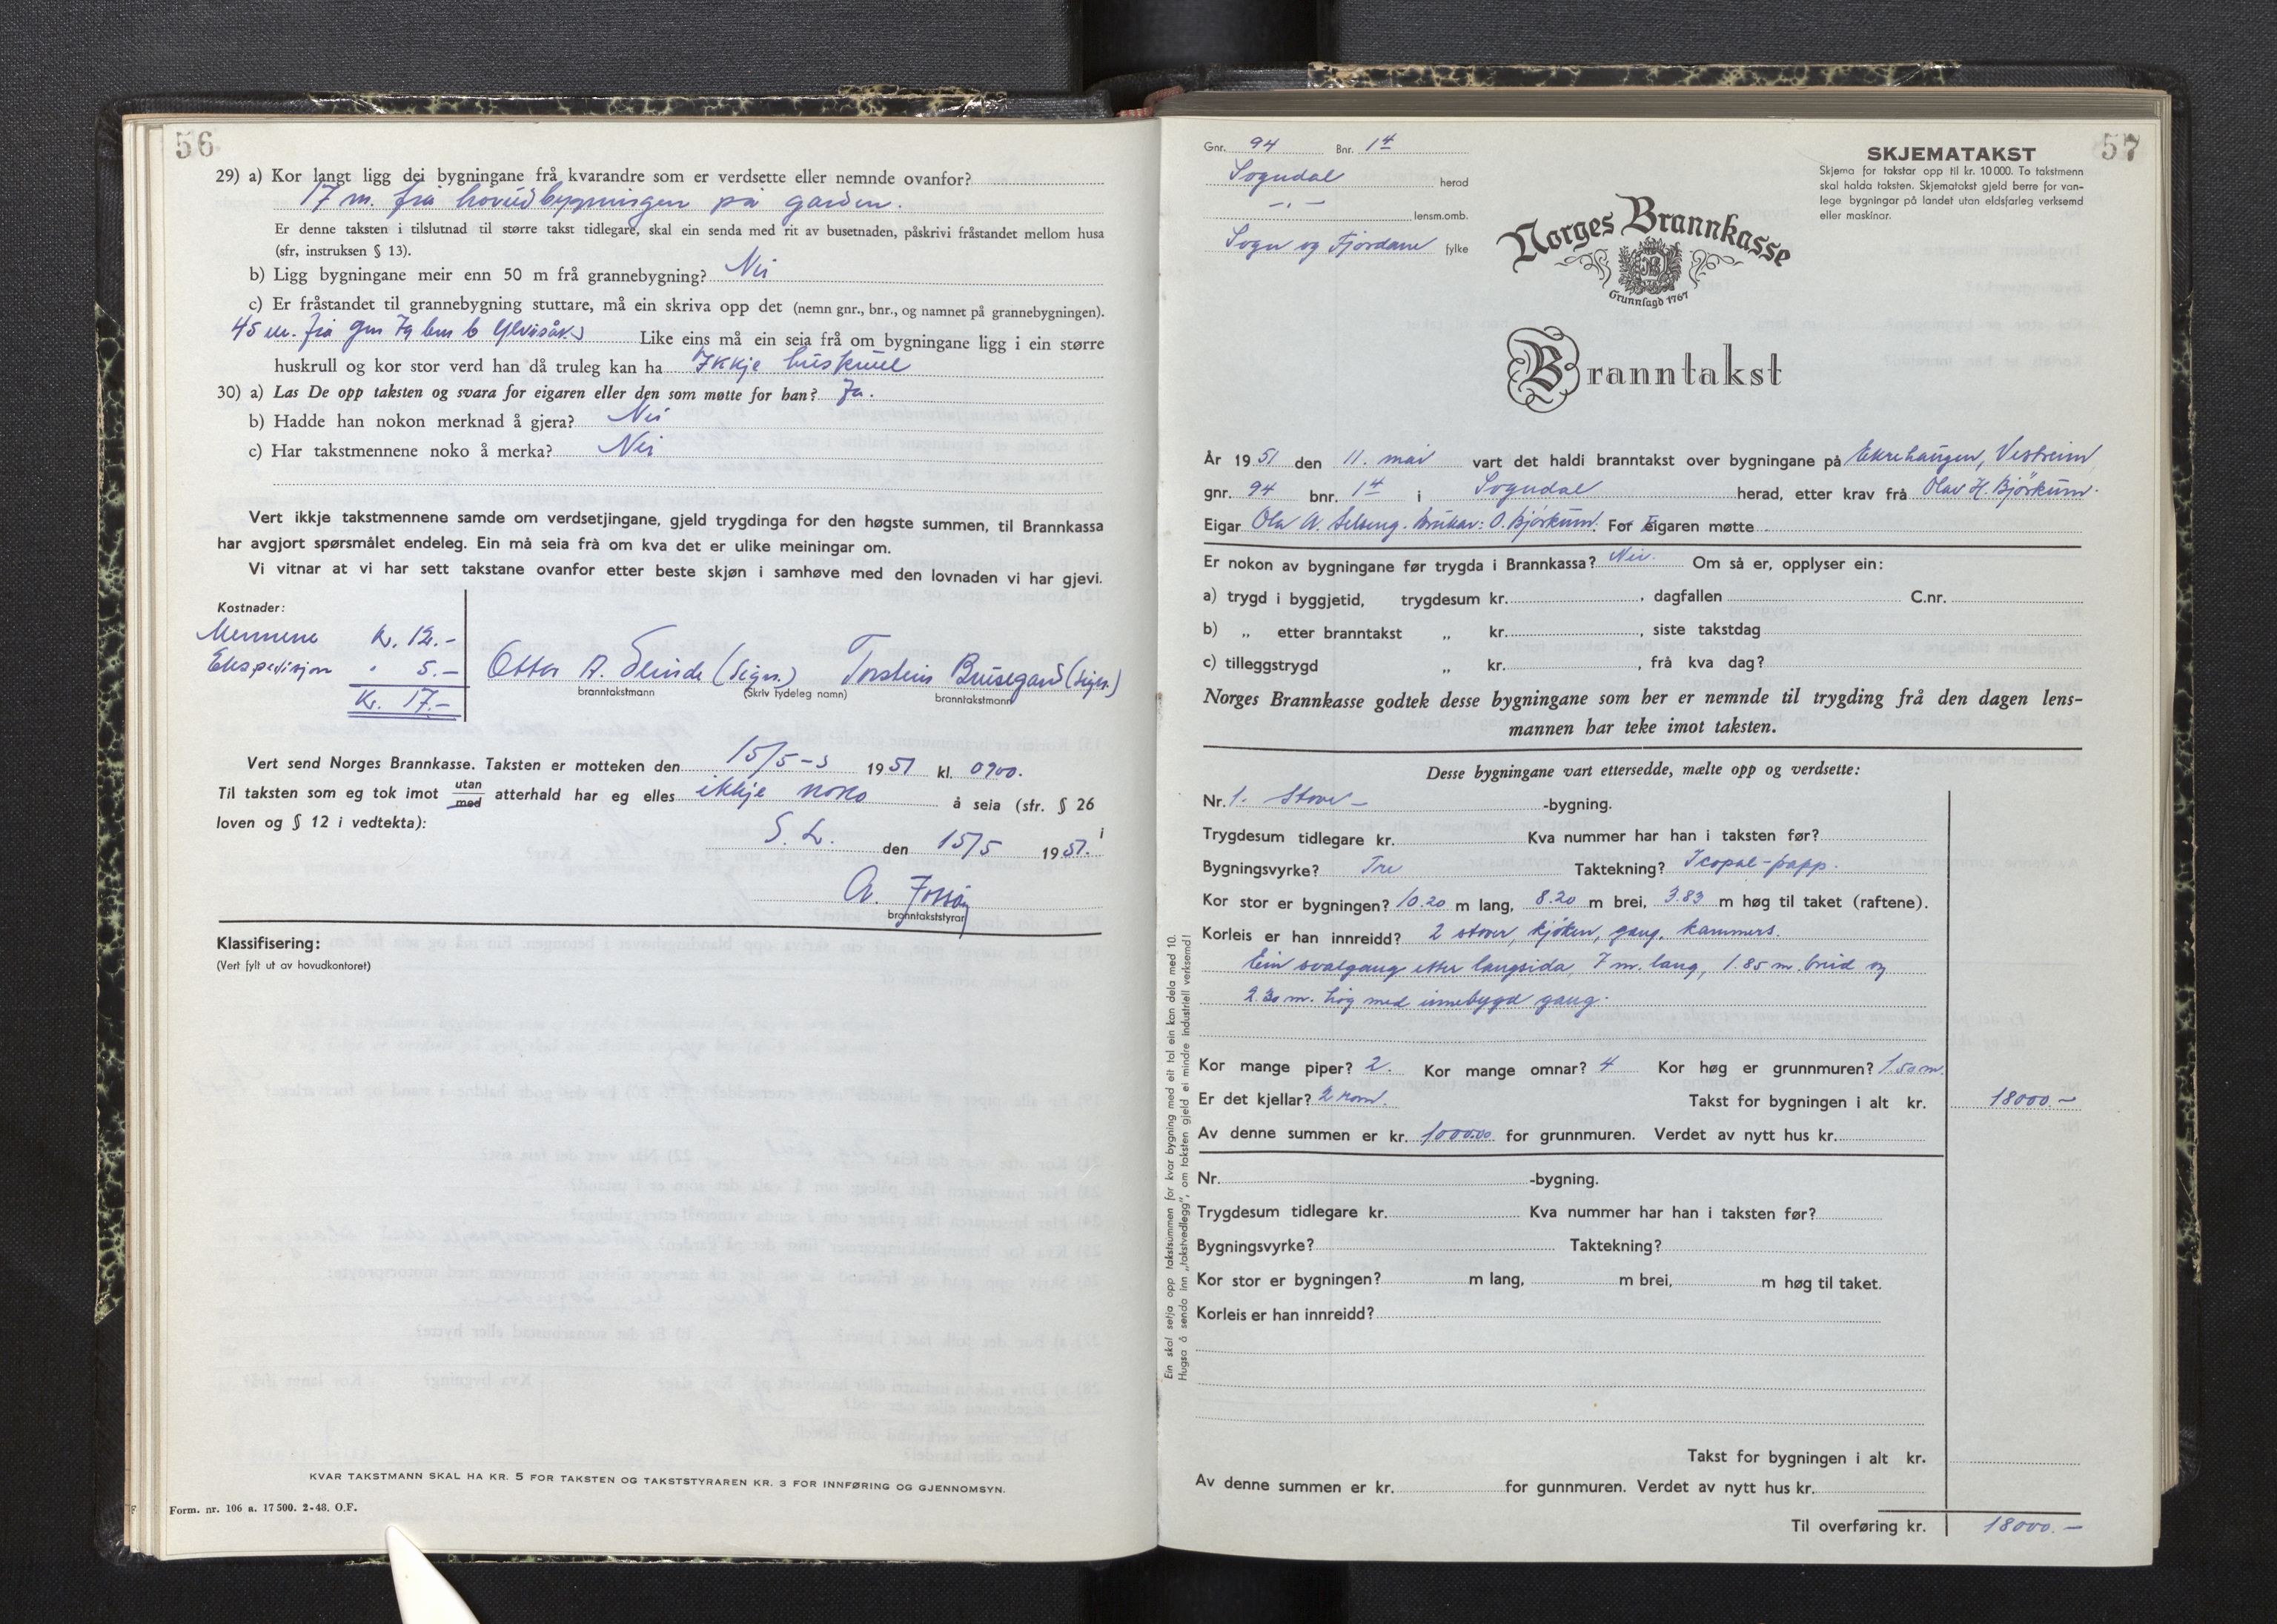 56
29) a) Kor langt ligg dei bygningane frå kvarandre som er verdsette eller nemnde ovanfor?
17 m. frå hovudbygningen på garden.
Er denne taksten i tilslutnad til større takst tidlegare, skal ein senda med rit av busetnaden, påskrivi fråstandet mellom husa
(sfr, instruksen § 13).
b) Ligg bygningane meir enn 50 m frå grannebygning? Nei
c) Er fråstandet til grannebygning stuttare, må ein skriva opp det (nemn gnr., bnr., og namnet på grannebygningen).
45 m. frå gnr 79 bnr 6 Ylvisåk. Like eins må ein seia frå om bygningane ligg i ein større
huskrull og kor stor verd han då truleg kan ha Ikkje huskrull
30) a) Las De opp taksten og svara for eigaren eller den som møtte for han? Ja.
b) Hadde han nokon merknad å gjera? Nei
c) Har takstmennene noko å merka? Nei
Vert ikkje takstmennene samde om verdsetjingane, gjeld trygdinga for den høgste summen, til Brannkassa
har avgjort spørsmålet endeleg. Ein må seia frà om kva det er ulike meiningar om.
Vi vitnar at vi har sett takstane ovanfor etter beste skjøn i samhøve med den lovnaden vi har gjevi.
Kostnader:
Mennene kr. 12.-
Ekspedisjon " 5.-
Kr. 17.-
Otter A. Slinde (sign.) Torstein Brusegard (sign.)
branntakstmann (Skriv tydeleg namn) branntakstmann
Vert send Norges Brannkasse. Taksten er motteken den 15/5-s 1951 kl. 0900.
Til taksten som eg tok imot utan/med atterhald har eg elles ikkje noko å seia (sfr. § 26 i
loven og § 12 i vedtekta):
S. L. den 15/5 1951.
A.
branntakststyrar
Klassifisering:
(Vert fylt ut av hovudkontoret)
KVAR TAKSTMANN SKAL HA KR. 5 FOR TAKSTEN OG TAKSTSTYRAREN KR. 3 FOR INNFØRING OG GJENNOMSYN.
Form. nr. 106 a. 17500. 2-48. O.F.
57
Gnr. 94 Bnr. 14
Sogndal herad
-"- lensm.omb.
Sogn og Fjordane fylke
SKJEMATAKST
Skjema for takstar opp til kr. 10 000. To takstmenn
skal halda taksten. Skjematakst gjeld berre for van-
lege bygningar på landet utan eldsfarleg verksemd
eller maskinar.
Norges Brannkasse
Grunnlagd 1767
Branntakst
År 1951 den 11. mai vart det haldi branntakst over bygningane på Ekrehaugen, Vestreim
gnr. 94 bnr. 14 i Sogndal herad, etter krav frå Olav H. Bjørkum.
Eigar Ola A. Selseng. Brukar: O. Bjørkum. For Eigaren møtte
Er nokon av bygningane før trygda i Brannkassa? Nei. Om så er, opplyser ein:
a) trygd i byggjetid, trygdesum kr. , dagfallen C.nr.
b) „ etter branntakst „ kr. , siste takstdag
c) tilleggstrygd „ kr. , frå kva dag?
Norges Brannkasse godtek desse bygningane som her er nemnde til trygding frå den dagen lens-
mannen har teke imot taksten.
Desse bygningane vart ettersedde, mælte opp og verdsette:
Nr. 1. Stove- -bygning.
Trygdesum tidlegare kr. Kva nummer har han i taksten før?
Bygningsvyrke? Tre Taktekning? Icopal-papp.
Kor stor er bygningen? 10.20 m lang, 8.20 m brei, 3.83 m høg til taket (raftene).
Korleis er han innreidd? 2 stover, kjøken, gang, kammers.
Ein svalgang etter langsida, 7 m. lang, 1.85 m. breid og
2.30 m. høg med innebygd gang.
Kor mange piper? 2. Kor mange omnar? 4 Kor høg er grunnmuren? 1.50 m.
Er det kjellar? 2 rom. Takst for bygningen i alt kr. 18000.-
Av denne summen er kr. 1000.00 for grunnmuren. Verdet av nytt hus kr.
Nr. -bygning.
Trygdesum tidlegare kr. Kva nummer har han i taksten før?
Bygningsvyrke? Taktekning?
Kor stor er bygningen? m lang, m brei, m høg til taket.
Korleis er han innreidd?
Takst for bygningen i alt kr.
Av denne summen er kr. for gunnmuren. Verdet av nytt hus kr.
Til overføring kr. 18000.-
Ein skal setja opp takstsummen for kvar bygning med eit tal ein kan dela med 10.
Hugsa å senda inn „takstvedlegg", om taksten gjeld ei mindre industriell verksemd!